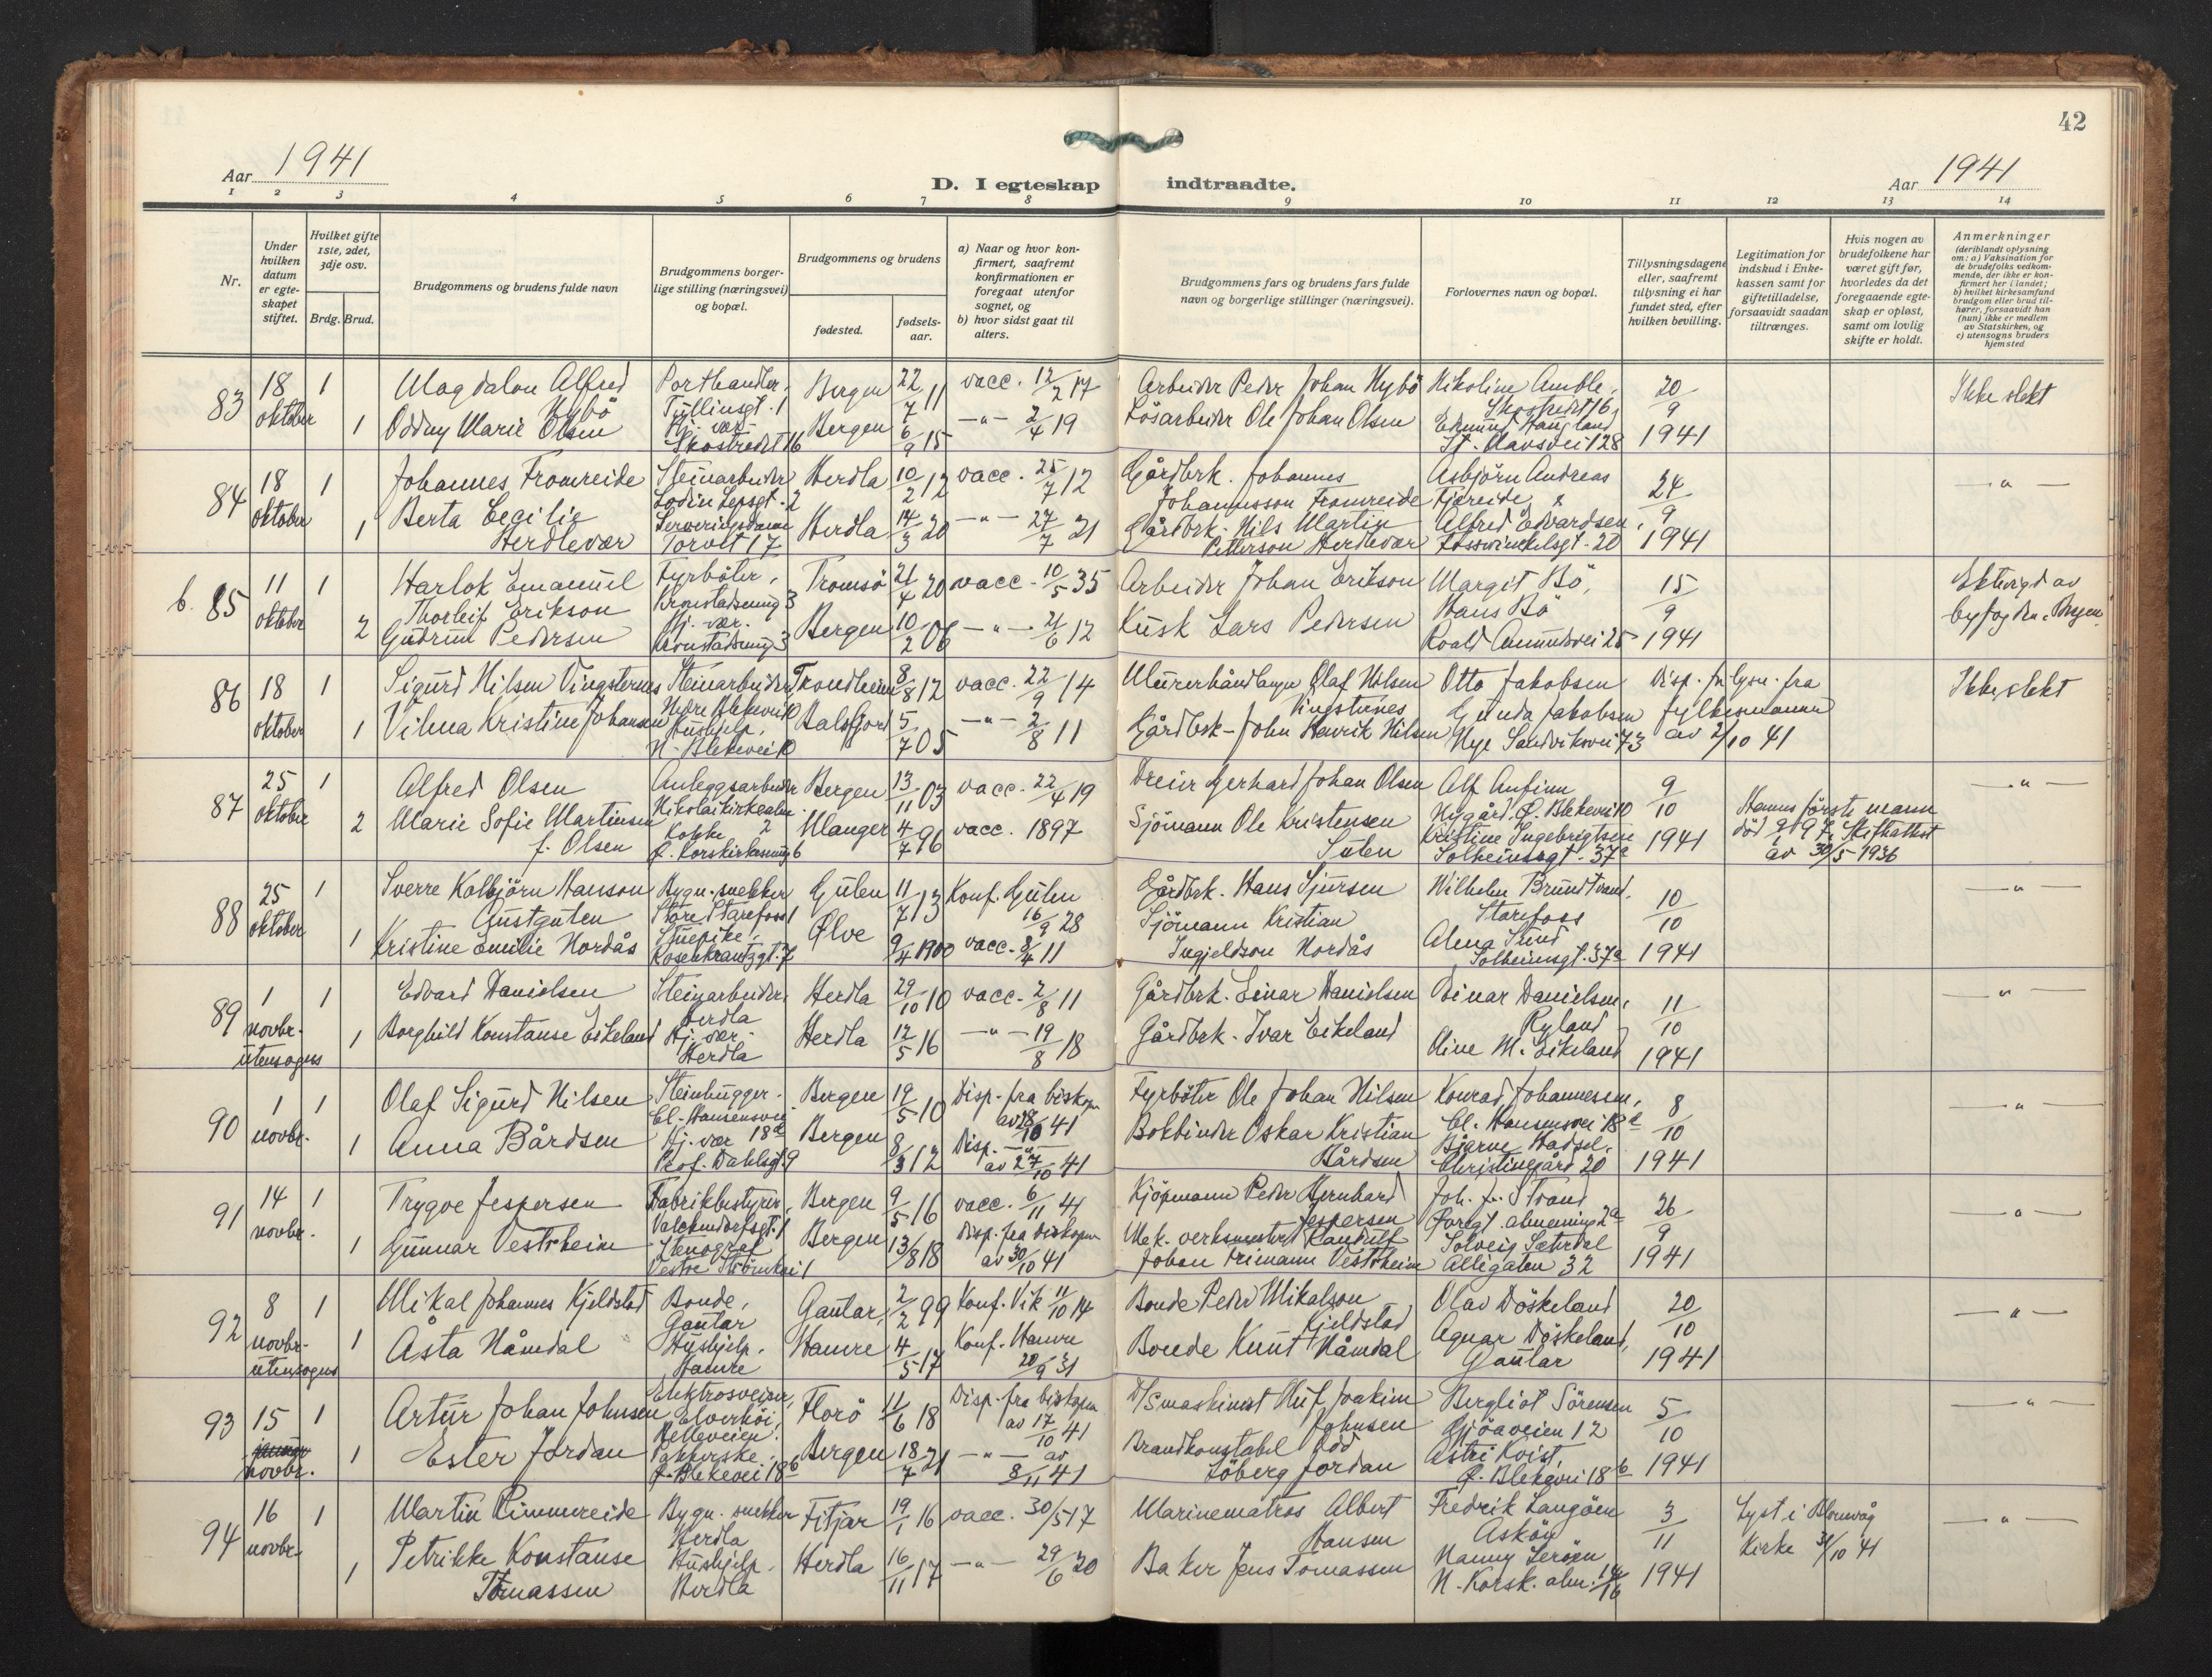 42
Aar 1941
D. I egteskap indtraadte.
Aar 1941
1 2 3 4 5 6 7 8 9 10 11 12 13 14
Nr.
Under hvilken datum er egteskapet stiftet.
Hvilket gifte 1ste, 2det, 3dje osv.
Brdg. Brud.
Brudgommens og brudens fulde navn
Brudgommens borgerlige stilling (næringsvei) og bopæl.
Brudgommens og brudens
fødested.
fødselsaar.
a) Naar og hvor konfirmert, saafremt konfirmationen er foregaat utenfor sognet, og
b) hvor sidst gaat til alters.
Brudgommens fars og brudens fars fulde navn og borgerlige stillinger (næringsvei).
Forlovernes navn og bopæl.
Tillysningsdagene eller, saafremt tillysning ei har fundet sted, efter hvilken bevilling.
Legitimation for indskud i Enkekassen samt for giftetilladelse, forsaavidt saadan tiltrænges.
Hvis nogen av brudefolkene har været gift før, hvorledes da det foregaaende egteskap er opløst, samt om lovlig skifte er holdt.
Anmerkninger
(deriblandt oplysning om: a) Vaksination for de brudefolks vedkommende, der ikke er konfirmert her i landet; b) hvilket kirkesamfund brudgom eller brud tilhører, forsaavidt han (hun) ikke er medlem av Statskirken, og c) utensogns bruders hjemsted
83 18 oktober 1 Magdalon Alfred Hybö Porthandler, Tullinsgt. 1 Bergen 22/7 11 vacc. 12/2 17 Arbeider Peder Johan Hybö Nikoline Amble, Skostredet 16, 20/9 1941 Ikke slekt
1 Oddny Marie Olsen Hj. vær. Skostredet 16 Bergen 6/9 15 -"- 2/4 19 Lösarbeider Ole Johan Olsen Edmund Haugland St. Olavsvei 128
84 18 oktober 1 Johannes Fromreide Steinarbeider Lodin Lepsgt. 2 Herdla 10/2 12 vacc. 25/7 12 Gårdbrk. Johannes Johannesson Fromreide Asbjörn Andreas Fjæreide & 24/9 1941 -"-
1 Berta Cecilie Herdlevær Serveringsdame Torvet 17 Herdla 14/3 20 -"- 27/7 21 Gårdbrk. Nils Martin Petterson Herdlevær Alfred Edvardsen, Fosswinckelsgt. 20
b. 85 11 oktober 1 Harlok Emanuel Thorleif Erikson Fyrböter, Kronstadsmug 3 Tromsö 21/4 20 vacc. 10/5 35 Arbeider Johan Erikson Margit Bö, 15/9 1941 Ektevigd av byfogden i Bergen
2 Gudrun Pedersen Hj. vær. Kronstadsmug 3 Bergen 10/2 06 -"- 21/6 12 Kusk Lars Pedersen Hans Bö Roald Amundsvei 25
86 18 oktober 1 Sigurd Nilsen Vingsternes Steinarbeider Nedre Blekevei 10 Trondheim 8/8 12 vacc. 22/9 14 Murerhåndlanger Olaf Nilsen Vingsternes Otto Jakobsen Disp. for lysn. fra fylkesmannen av 2/10 41 Ikke slekt
1 Vilma Kristine Johansen Hushjelp, N. Blekevei 10 Balsfjord 5/7 05 -"- 2/8 11 Gårdbrk. John Henrik Nilsen Gunda Jakobsen Nye Sandviksvei 73
87 25 oktober 1 Alfred Olsen Anleggsarbeider Nikolaikirkealm. 2 Bergen 13/11 03 vacc. 22/4 19 Dreier Gerhard Johan Olsen Alf Anfinn Nygård, Ö. Blekevei 10 9/10 1941 -"-
2 Marie Sofie Martinsen f. Olsen Kokke Ö. Korskirkesmug 6 Manger 4/7 96 vacc. 1897 Sjömann Ole Kristensen Kristine Ingebrigtsen Solheimsgt. 37a Hennes første mann död Skifteattest av 30/5 1936
88 25 oktober 1 Sverre Kolbjörn Hanson Bygn. snekker Store Starefoss 1 Gulen 11/7 13 Konf. Gulen 16/9 28 Gårdbrk. Hans Sjursen Wilhelm Brundtvand, Starefoss 10/10 1941 -"-
1 Kristine Emilie Nordås Stuepike, Rosenkrantzgt. 7 Ølve 9/4 1900 vacc. 8/4 11 Sjömann Kristian Ingjeldson Nordås Alma Sund Solheimsgt. 37a
89 1 novbr. utensogns 1 Edvard Danielsen Steinarbeider Herdla Herdla 29/10 10 vacc. 2/8 11 Gårdbrk. Einar Danielsen Einar Danielsen, Ryland 11/10 1941 -"-
1 Borghild Konstanse Eikeland Hj. vær. Herdla Herdla 12/5 16 -"- 19/8 18 Gårdbrk. Ivar Eikeland Oline M. Eikeland
90 1 novbr. 1 Olaf Sigurd Nilsen Steinhugger. Cl. Hansensvei 18d Bergen 19/5 10 Disp. fra biskopen av 28/10 41 Fyrböter Ole Johan Nilsen Konrad Johannesen, Cl. Hansensvei 18d 8/10 1941 -"-
1 Anna Bårdsen Hj. vær Prof. Dahlsgt 9 Bergen 8/3 12 Disp. -"- av 27/10 41 Bokbinder Oskar Kristian Bårdsen Bjarne Hadsel, Christinegård 20
91 14 novbr. 1 Trygve Jespersen Fabrikbestyrer, Valckendorfsgt. 1 Bergen 9/5 16 vacc. 6/11 41 Kjöpmann Peder Bernhard Jespersen Joh. fr. Strand 26/9 1941 -"-
1 Gunnar Vestrheim Stenograf Vestre Strömkai 1 Bergen 13/8 18 Disp. fra biskopen av 30/10 41 Mek. verksmester Randulf Johan Frimann Vestrheim Solveig Sæterdal Allégaten 32
92 8 novbr. utensogns 1 Mikal Johannes Kjeldstad Bonde, Gaular Gaular, 2/2 99 Konf. Vik 11/10 14 Bonde Peder Mikalson Kjeldstad Olav Döskeland 20/10 1941 -"-
1 Åsta Nåmdal Hushjelp. Hamre Hamre 4/5 17 Konf. Hamre 20/9 31 Bonde Knut Nåmdal Agnar Döskeland, Gaular
93 15 novbr. 1 Artur Johan Johnsen Elektrosveiser, Elverhöi, Helleveien. Florö 11/6 18 Disp. fra biskopen av 17/10 41 D/S maskinist Joakim Johnsen Bergliot Sörensen Gjöaveien 12 5/10 1941 -"-
1 Ester Jordan Pakkerske Ö. Blekevei 18b Bergen 18/7 21 -"- av 8/11 41 Brandkonstabel Odd Löberg Jordan Astri Kvist, Ö. Blekevei 18b
94 16 novbr. 1 Martin Rimmereide Bygn. snekker Herdla Fitjar 19/1 16 vacc. 30/5 17 Marinematros Albert Hansen Fredrik Langöen Asköy 3/11 1941 Lyst i Blomvåg Kirke 31/10 41 -"-
1 Petrikke Konstanse Tomassen Hushjelp. Herdla Herdla 16/11 17 -"- 29/6 20 Baker Jens Tomassen Nanny Leröen N. Korsk. alm. 14/16